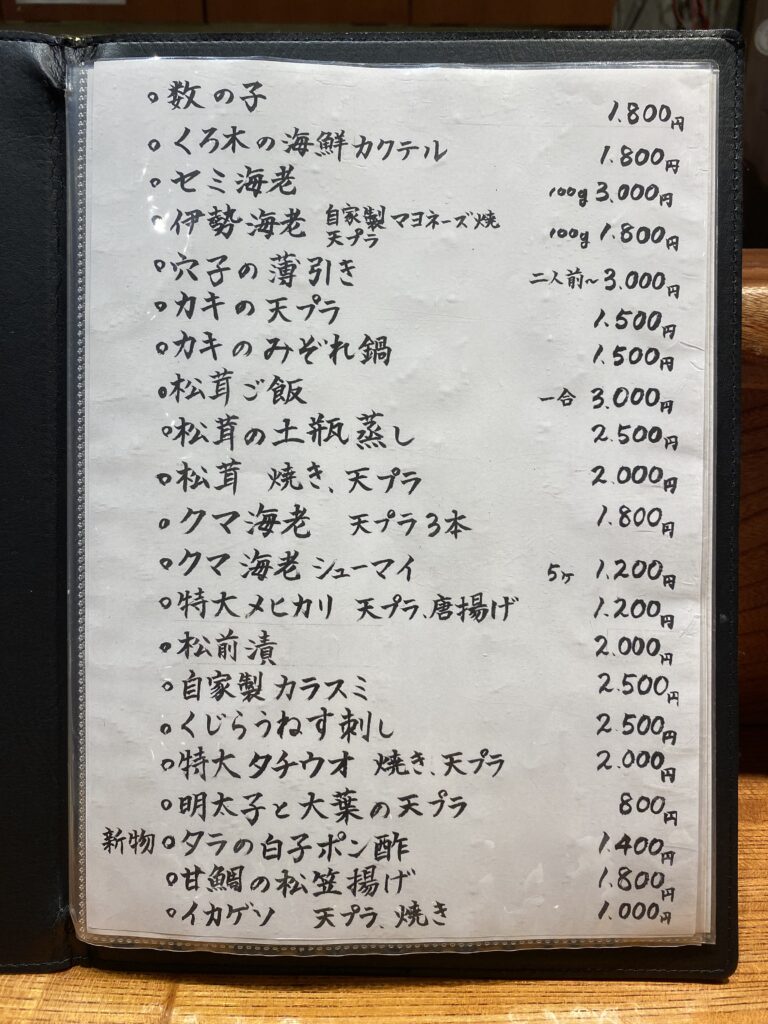 。数の子 1.800円
。くろ木の海鮮カクテル 1.800円
。セミ海老 100g 3.000円
。伊勢海老 自家製マヨネーズ焼 天プラ 100g 1.800円
。穴子の薄引き 二人前~3.000円
。カキの天プラ 1.500円
。カキのみぞれ鍋 1.500円
。松茸ご飯 一合 3.000円
。松茸の土瓶蒸し 2.500円
。松茸 焼き、天プラ 2.000円
。クマ海老 天プラ3本 1.800円
。クマ海老シューマイ 5ヶ 1.200円
。特大メヒカリ 天プラ、唐揚げ 1.200円
。松前漬 2.000円
。自家製カラスミ 2.500円
。くじらうねす刺し 2.500円
。特大タチウオ 焼き、天プラ 2.000円
。明太子と大葉の天プラ 800円
新物。タラの白子ポン酢 1.400円
。甘鯛の松笠揚げ 1.800円
。イカゲソ 天プラ、焼き 1.000円